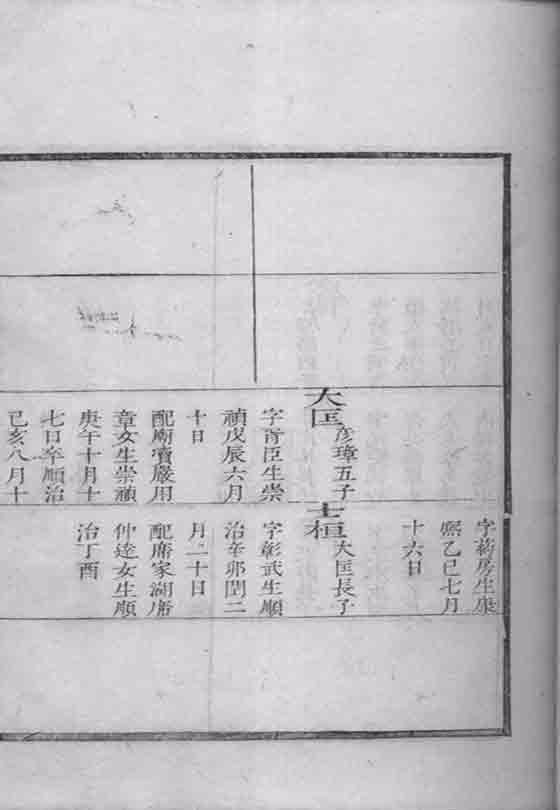 大匡
彥璋五子
字胥臣生崇
禎戊辰六月
十日
配廟寶嚴用
章女生崇禎
庚午十月十
七日卒順治
己亥八月十
字房生康
熙乙巳七月
十六日
士桓
大匡長子
字彰武生順
治辛卯閏二
月二十日
配家湖
仲達女生順
治丁酉